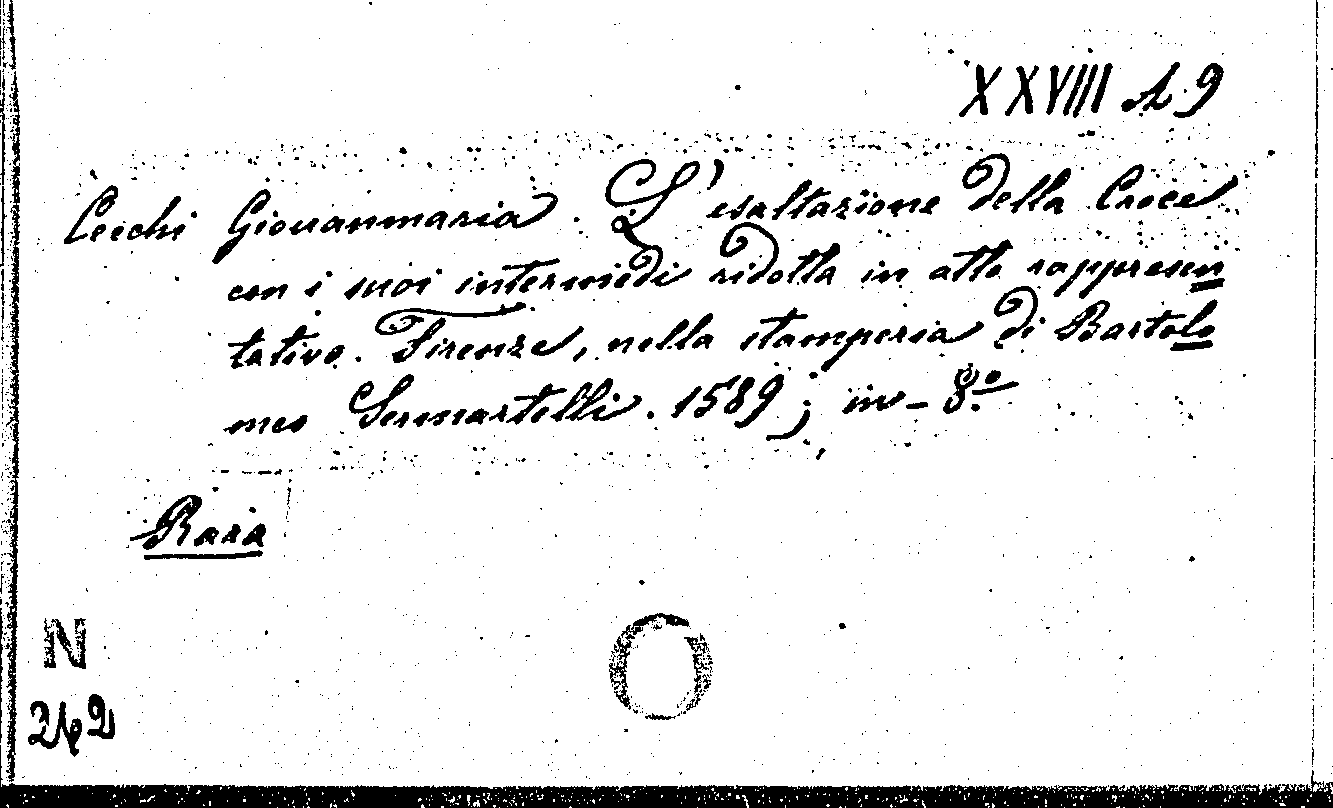 XXVIII A. 9
Cecchi Giovanmaria. L'esaltazione della Croce
con i suoi intermedi ridotta in atto rappresen
tativo. Firenze, nella stamperia di Bartolo
meo Sermartelli. 1589; in-8.º
Rara
N
242